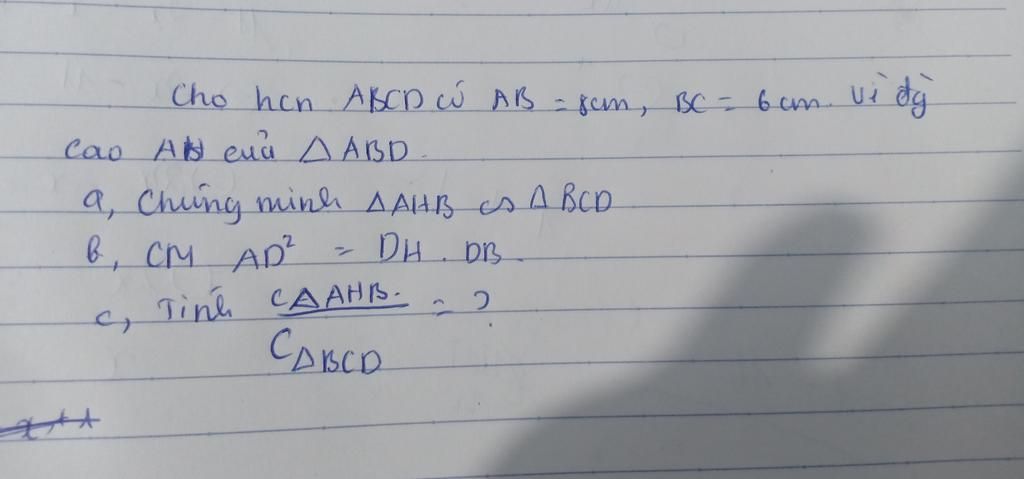 Cho hcn ABCD có AB = 8cm, BC = 6cm. Vẽ đg
cao AH của △ ABD.
a, Chứng minh △AHB ∽ △ BCD
b, CM AD² = DH . DB.
c, Tính C△AHB. / C△BCD = ?